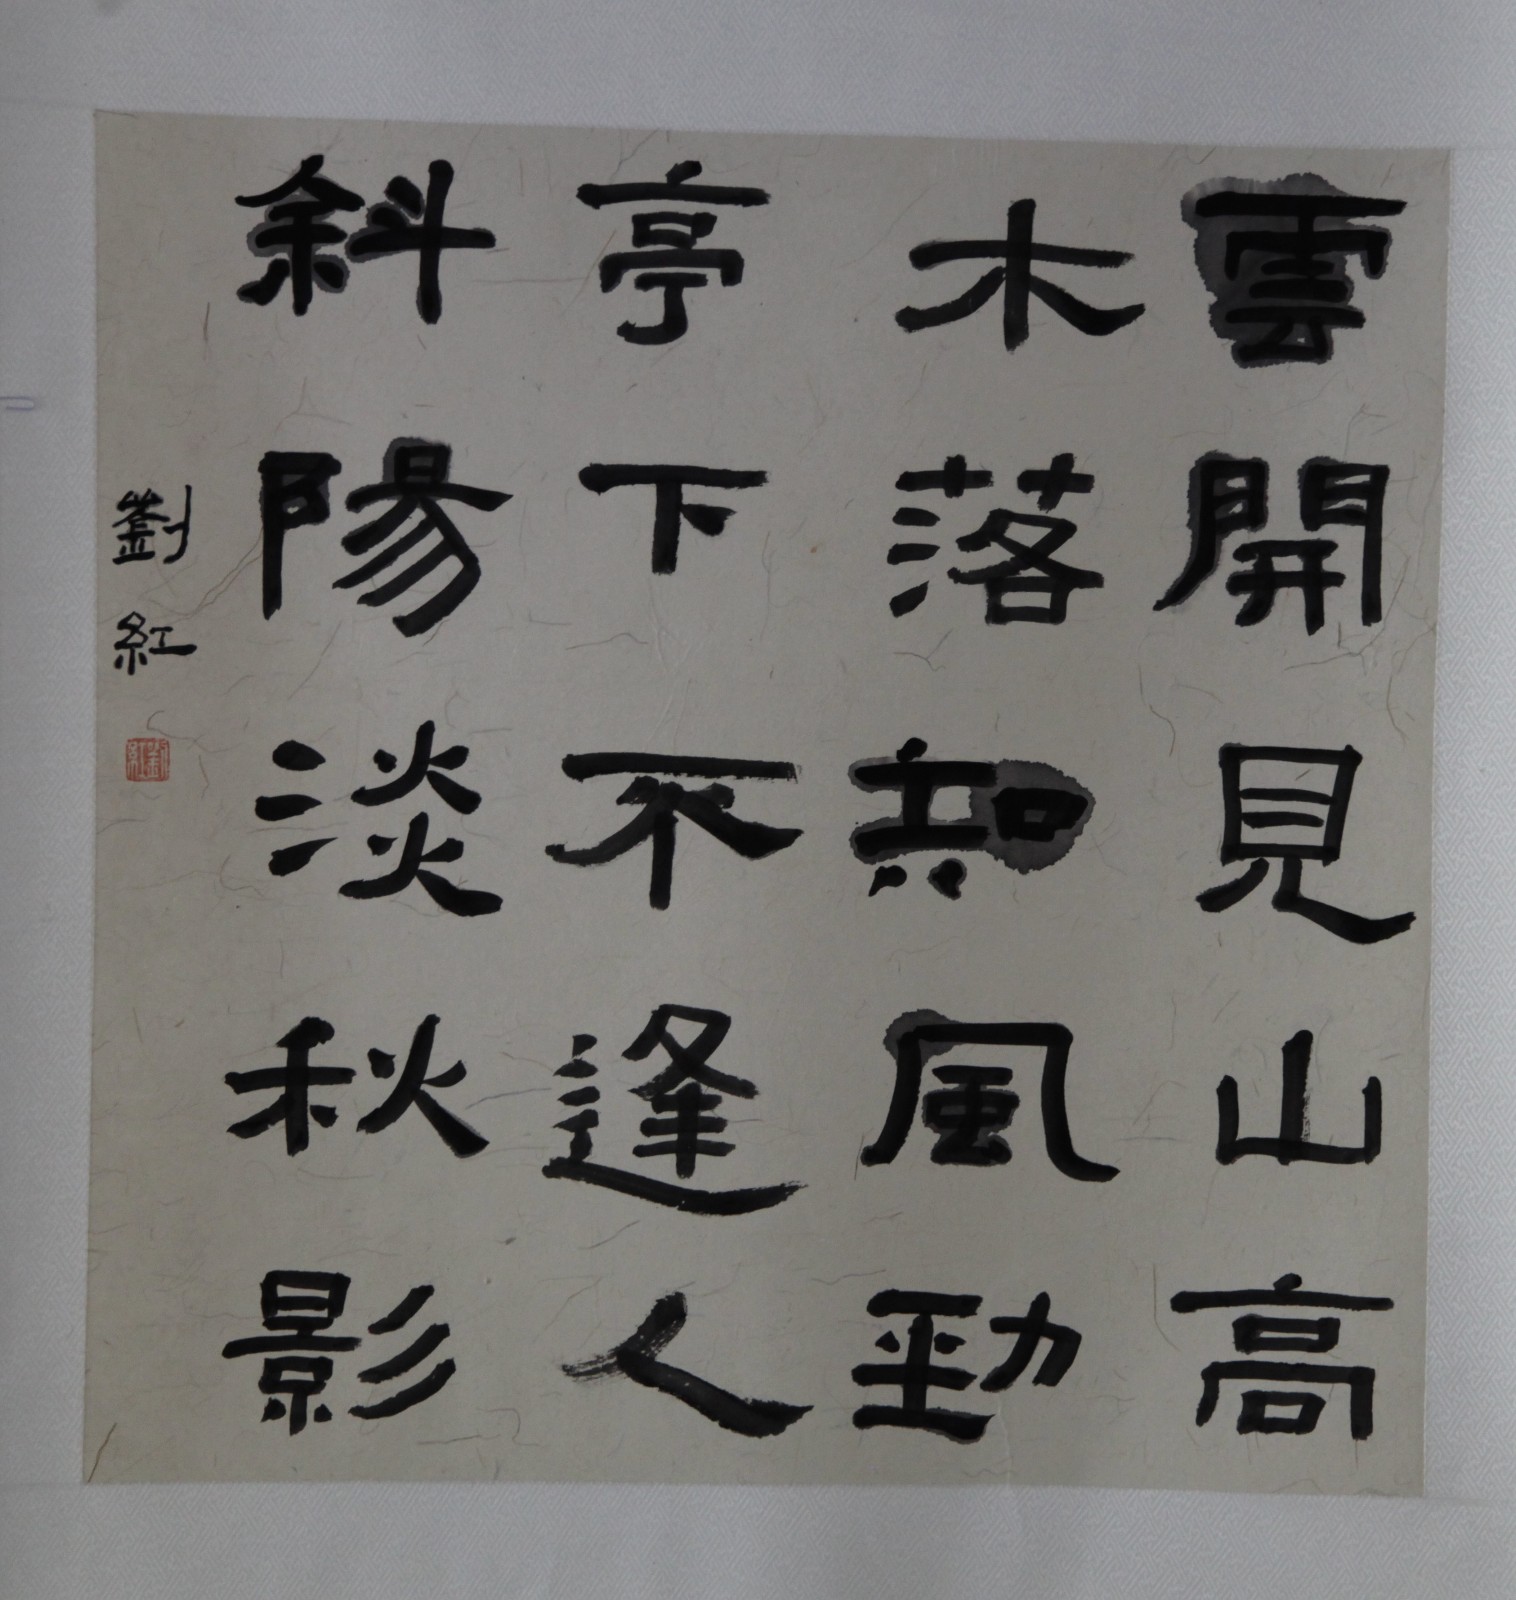 雲開見山高
木落知風勁
亭下不逢人
斜陽淡秋影
劉紅
劉紅